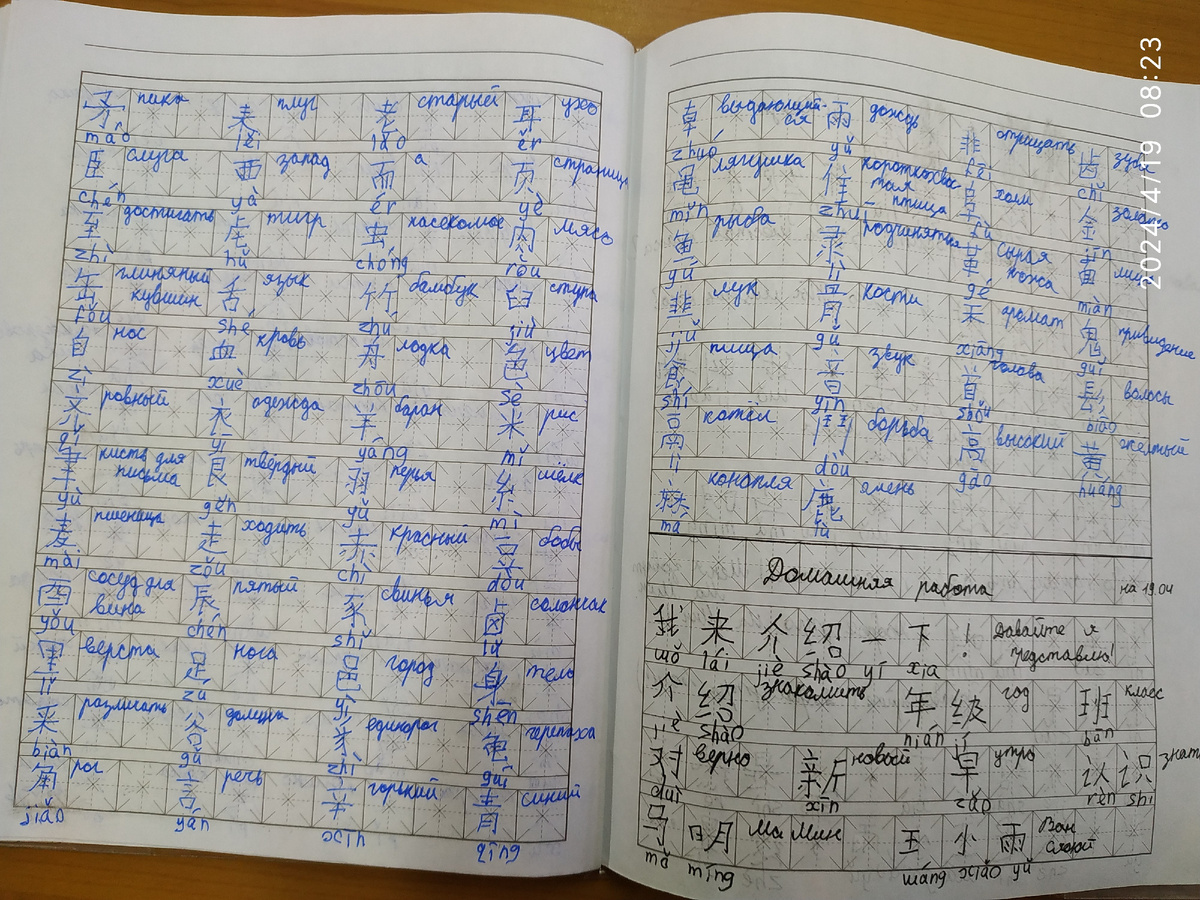 矛 пика 耒 плуг 老 старый 耳 ухо
máo lěi lǎo ěr
臣 слуга 西 запад 而 а 页 страница
chén yà ér yè
至 достигать 虍 тигр 虫 насекомое 肉 мясо
zhì hǔ chóng ròu
缶 глиняный кувшин 舌 язык 竹 бамбук 臼 ступа
fǒu shé zhú jiù
自 нос 血 кровь 舟 лодка 色 цвет
zì xuè zhōu sè
齐 ровный 衣 одежда 羊 баран 米 рис
qí yī yáng mǐ
聿 кисть для письма 艮 твёрдый 羽 перья 糸 шёлк
yù gěn yǔ mì
麦 пшеница 走 ходить 赤 красный 豆 бобы
mài zǒu chì dòu
酉 сосуд для вина 辰 пятый 豕 свинья 卤 солончак
yǒu chén shǐ lǔ
里 верста 足 нога 邑 город 身 тело
lǐ zú yì shēn
釆 различать 谷 долина 豸 единорог 龟 черепаха
biàn gǔ zhì guī
角 рог 言 речь 辛 горький 青 синий
jiǎo yán xīn qīng
卓 выдающийся 雨 дождь 非 отрицать 齿 зубы
zhuó yǔ fēi chǐ
黾 лягушка 隹 короткохвостая птица 阜 холм 金 золото
mǐn zhuī fù jīn
鱼 рыба 隶 подчиняться 革 сырая кожа 面 лицо
yú lì gé miàn
韭 лук 骨 кости 禾 аромат 鬼 привидение
jiǔ gǔ xiāng guǐ
食 пища 音 звук 首 голова 髟 волосы
shí yīn shǒu biāo
鬲 котёл 鬥 борьба 高 высокий 黄 желтый
lì dòu gāo huáng
麻 конопля 鹿 ямень
má lù
Домашняя работа на 19.04
我来介绍一下! Давайте я представлю!
wǒ lái jiè shào yí xià
介绍 знакомить 年级 год 班 класс
jiè shào nián jí bān
对 верно 新 новый 早 утро 认识 знать
duì xīn zǎo rèn shi
马明月 Ма Мин 王小雨 Ван Сяоюй
mǎ míng wáng xiǎo yǔ
2024/4/19 08:23